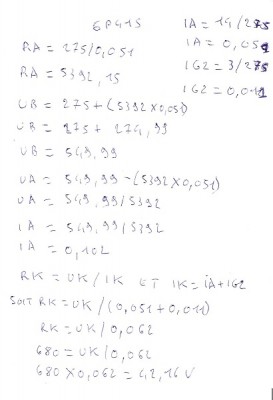 6P41S
IA = 14/275
RA = 275/0,051
IA = 0,051
RA = 5392,15
IG2 = 3/275
IG2 = 0,011
UB = 275+(5392x0,051)
UB = 275 + 274,99
UB = 549,99
UA = 549,99-(5392x0,051)
UA = 549,99/5392
IA = 549,99/5392
IA = 0,102
RK = UK/IK ET IK=IA+IG2
SOIT RK=UK/(0,051+0,011)
RK=UK/0,062
680=UK/0,062
680x0,062=42,16V